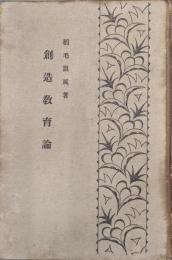 稲毛詛風著
創造教育論